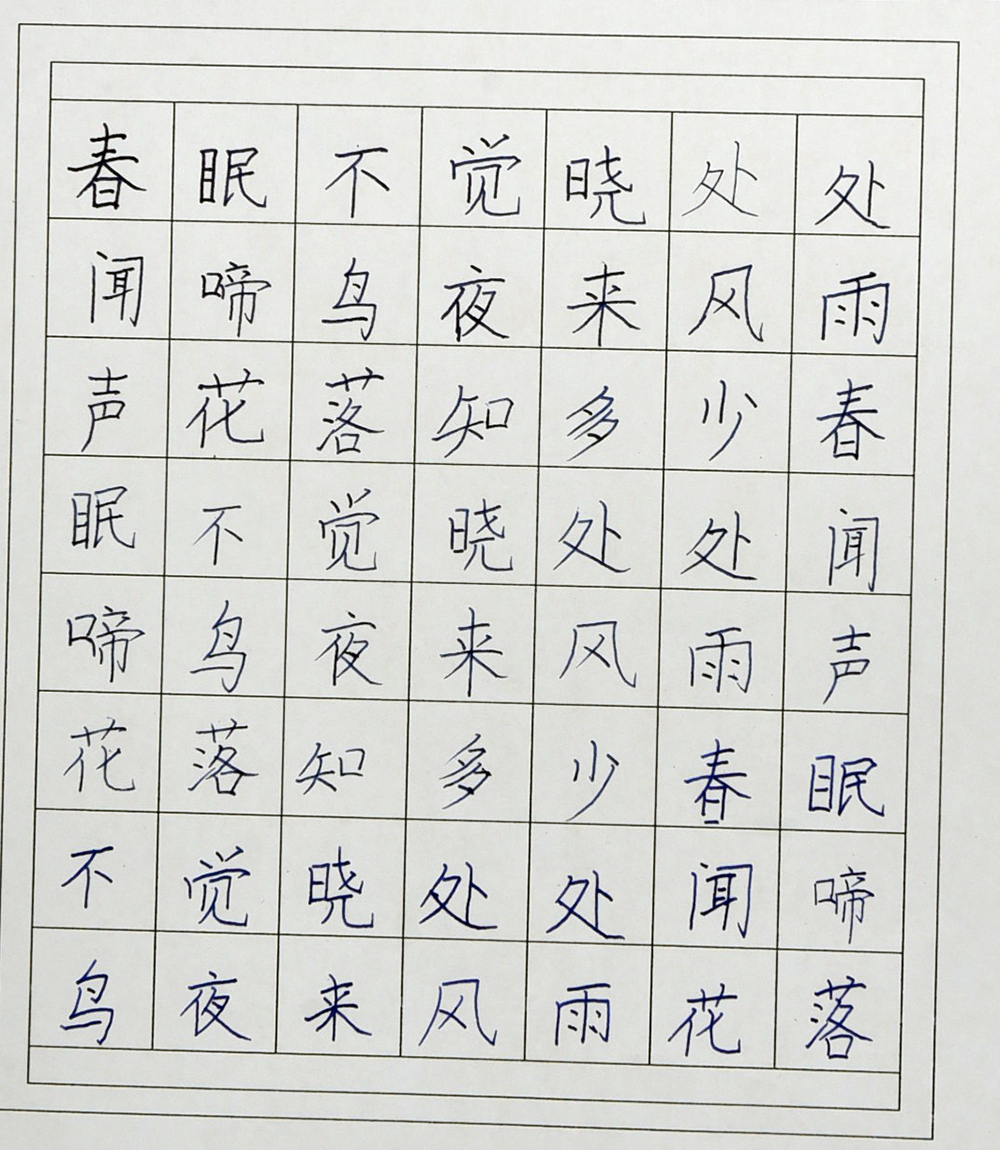 春眠不觉晓处处
闻啼鸟夜来风雨
声花落知多少春
眠不觉晓处处闻
啼鸟夜来风雨声
花落知多少春眠
不觉晓处处闻啼
鸟夜来风雨花落